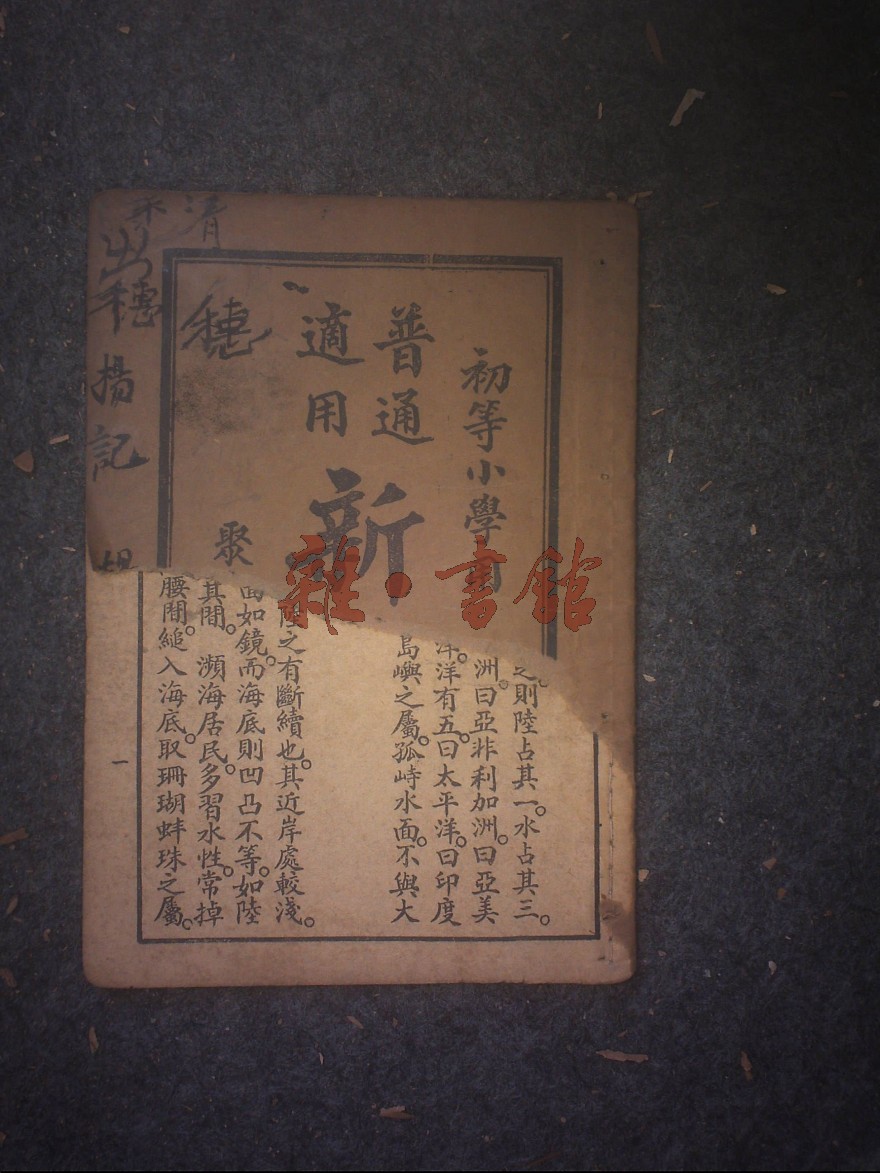 初等小學
普通
適用
新
聚
則陸占其一。水占其三。
洲。曰亞非利加洲。曰亞美
洋。洋有五。曰太平洋。曰印度
島嶼之屬。孤峙水面。不與大
陸之有斷續也。其近岸處較淺。
面如鏡。而海底則凹凸不等。如陸
其間。瀕海居民。多習水性。常掉
腰間。縋入海底。取珊瑚蚌珠之屬。
一
清
穗
出穗
揚記
雜·書館